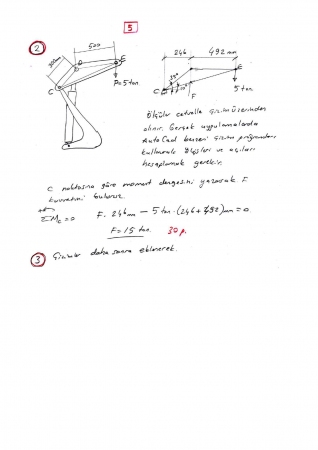 5
2
500
300mm
D
E
C
P=5 ton
246
492mm
E
C
F
5 ton
Ölçüler cetvelle çizim üzerinden
alınır. Gerçek uygulamalarda
AutoCad benzeri çizim programları
kullanarak ölçüleri ve açıları
hesaplamak gerekir.
C noktasına göre moment dengesini yazarsak F
kuvvetini buluruz.
ΣMc=0 F. 246mm - 5 ton.(246+492)mm=0
F=15 ton. 30 p.
3 Çizimler daha sonra eklenecek.